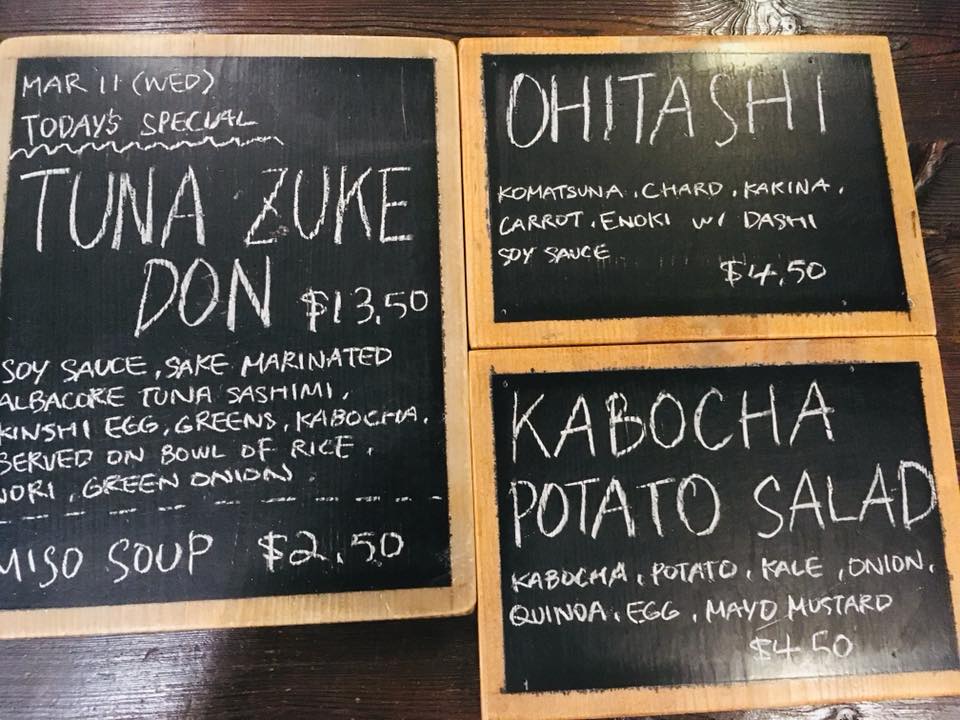 MAR 11 (WED)
TODAY'S SPECIAL
TUNA ZUKE
DON $13.50
SOY SAUCE, SAKE MARINATED
ALBACORE TUNA SASHIMI,
KINSHI EGG, GREENS, KABOCHA,
SERVED ON BOWL OF RICE,
NORI, GREEN ONION.
MISO SOUP $2.50
OHITASHI
KOMATSUNA, CHARD, KAKINA,
CARROT, ENOKI W/ DASHI
SOY SAUCE
$4.50
KABOCHA
POTATO SALAD
KABOCHA, POTATO, KALE, ONION,
QUINOA, EGG, MAYO MUSTARD
$4.50